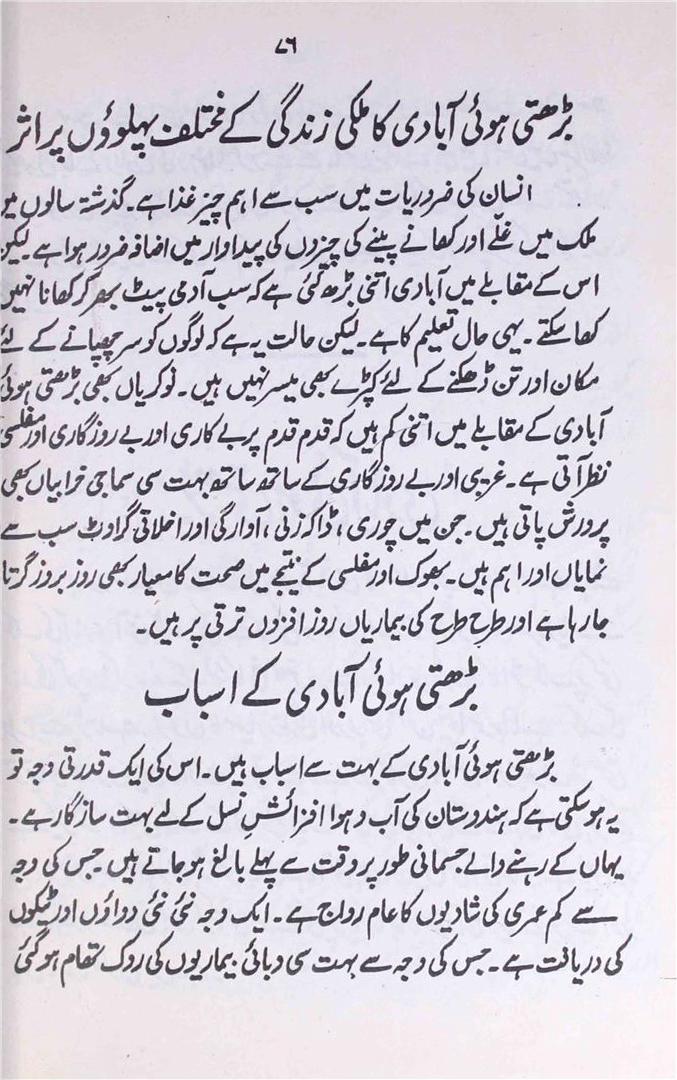 ۷۶
بڑھتی ہوئی آبادی کا ملکی زندگی کے مختلف پہلوؤں پر اثر
انسان کی ضروریات میں سب سے اہم چیز غذا ہے۔ گذشتہ سالوں میں
ملک میں غلّے اور کھانے پینے کی چیزوں کی پیداوار میں اضافہ ضرور ہوا ہے۔ لیکن
اس کے مقابلے میں آبادی اتنی بڑھ گئی ہے کہ سب آدمی پیٹ بھر کر کھانا نہیں
کھا سکتے۔ یہی حال تعلیم کا ہے۔ لیکن حالت یہ ہے کہ لوگوں کو سر چھپانے کے لئے
مکان اور تن ڈھکنے کے لئے کپڑے بھی میسر نہیں ہیں۔ نوکریاں بھی بڑھتی ہوئی
آبادی کے مقابلے میں اتنی کم ہیں کہ قدم قدم پر بے کاری اور بے روزگاری اور مفلسی
نظر آتی ہے۔ غریبی اور بے روزگاری کے ساتھ ساتھ بہت سی سماجی خرابیاں بھی
پرورش پاتی ہیں۔ جن میں چوری، ڈاکہ زنی، آوارگی اور اخلاقی گراوٹ سب سے
نمایاں اور اہم ہیں۔ بھوک اور مفلسی کے نتیجے میں صحت کا معیار بھی روز بروز گرتا
جا رہا ہے اور طرح طرح کی بیماریاں روز افزوں ترقی پر ہیں۔
بڑھتی ہوئی آبادی کے اسباب
بڑھتی ہوئی آبادی کے بہت سے اسباب ہیں۔ اس کی ایک قدرتی وجہ تو
یہ ہو سکتی ہے کہ ہندوستان کی آب و ہوا افزائشِ نسل کے لے بہت سازگار ہے۔
یہاں کے رہنے والے جسمانی طور پر وقت سے پہلے بالغ ہو جاتے ہیں جس کی وجہ
سے کم عمری کی شادیوں کا عام رواج ہے۔ ایک وجہ نئی نئی دواؤں اور ٹیکوں
کی دریافت ہے۔ جس کی وجہ سے بہت سی وبائی بیماریوں کی روک تھام ہو گئی